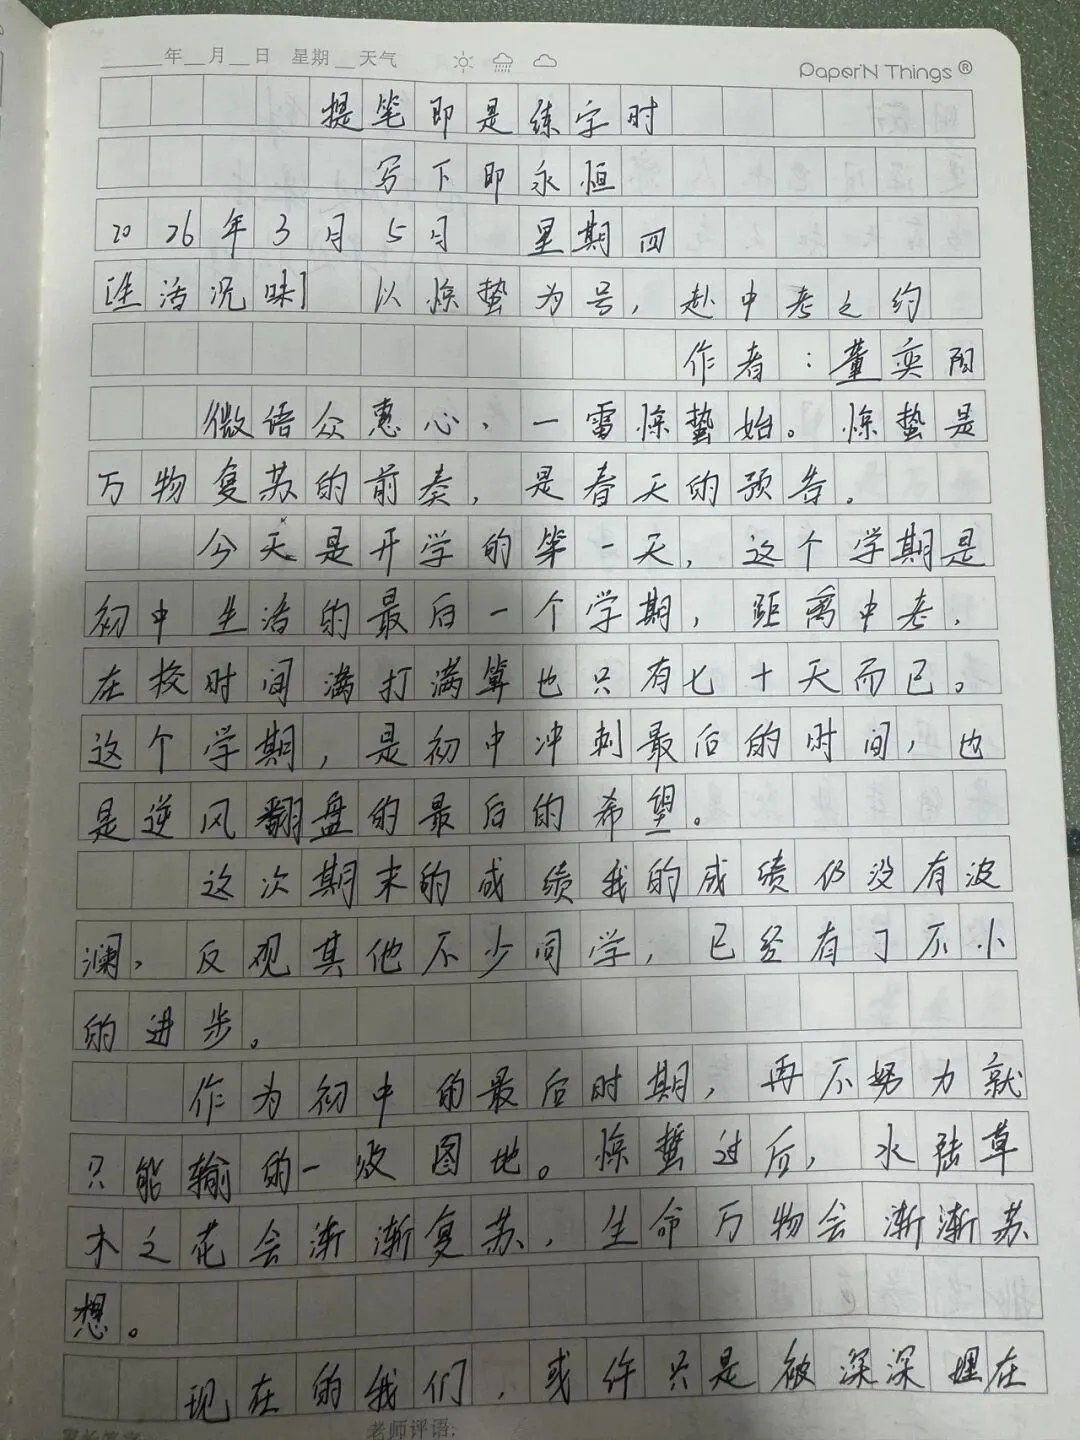 年 月 日 星期 天气
PaperN Things®
提笔即是练字时
写下即永恒
2026年3月5日 星期四
[生活沉味] 以惊蛰为号，赴中考之约
作者：董奕阳
微语众惠心，一雷惊蛰始。惊蛰是
万物复苏的前奏，是春天的预告。
今天是开学的第一天，这个学期是
初中生活的最后一个学期，距离中考，
在校时间满打满算也只有七十天而已。
这个学期，是初中冲刺最后的时间，也
是逆风翻盘的最后的希望。
这次期末的成绩我的成绩仍没有波
澜，反观其他不少同学，已经有了不小
的进步。
作为初中的最后时期，再不努力就
只能输的一败图地。惊蛰过后，水陆草
木之花会渐渐复苏，生命万物会渐渐苏
想。
现在的我们，或许只是被深深埋在
老师评语: